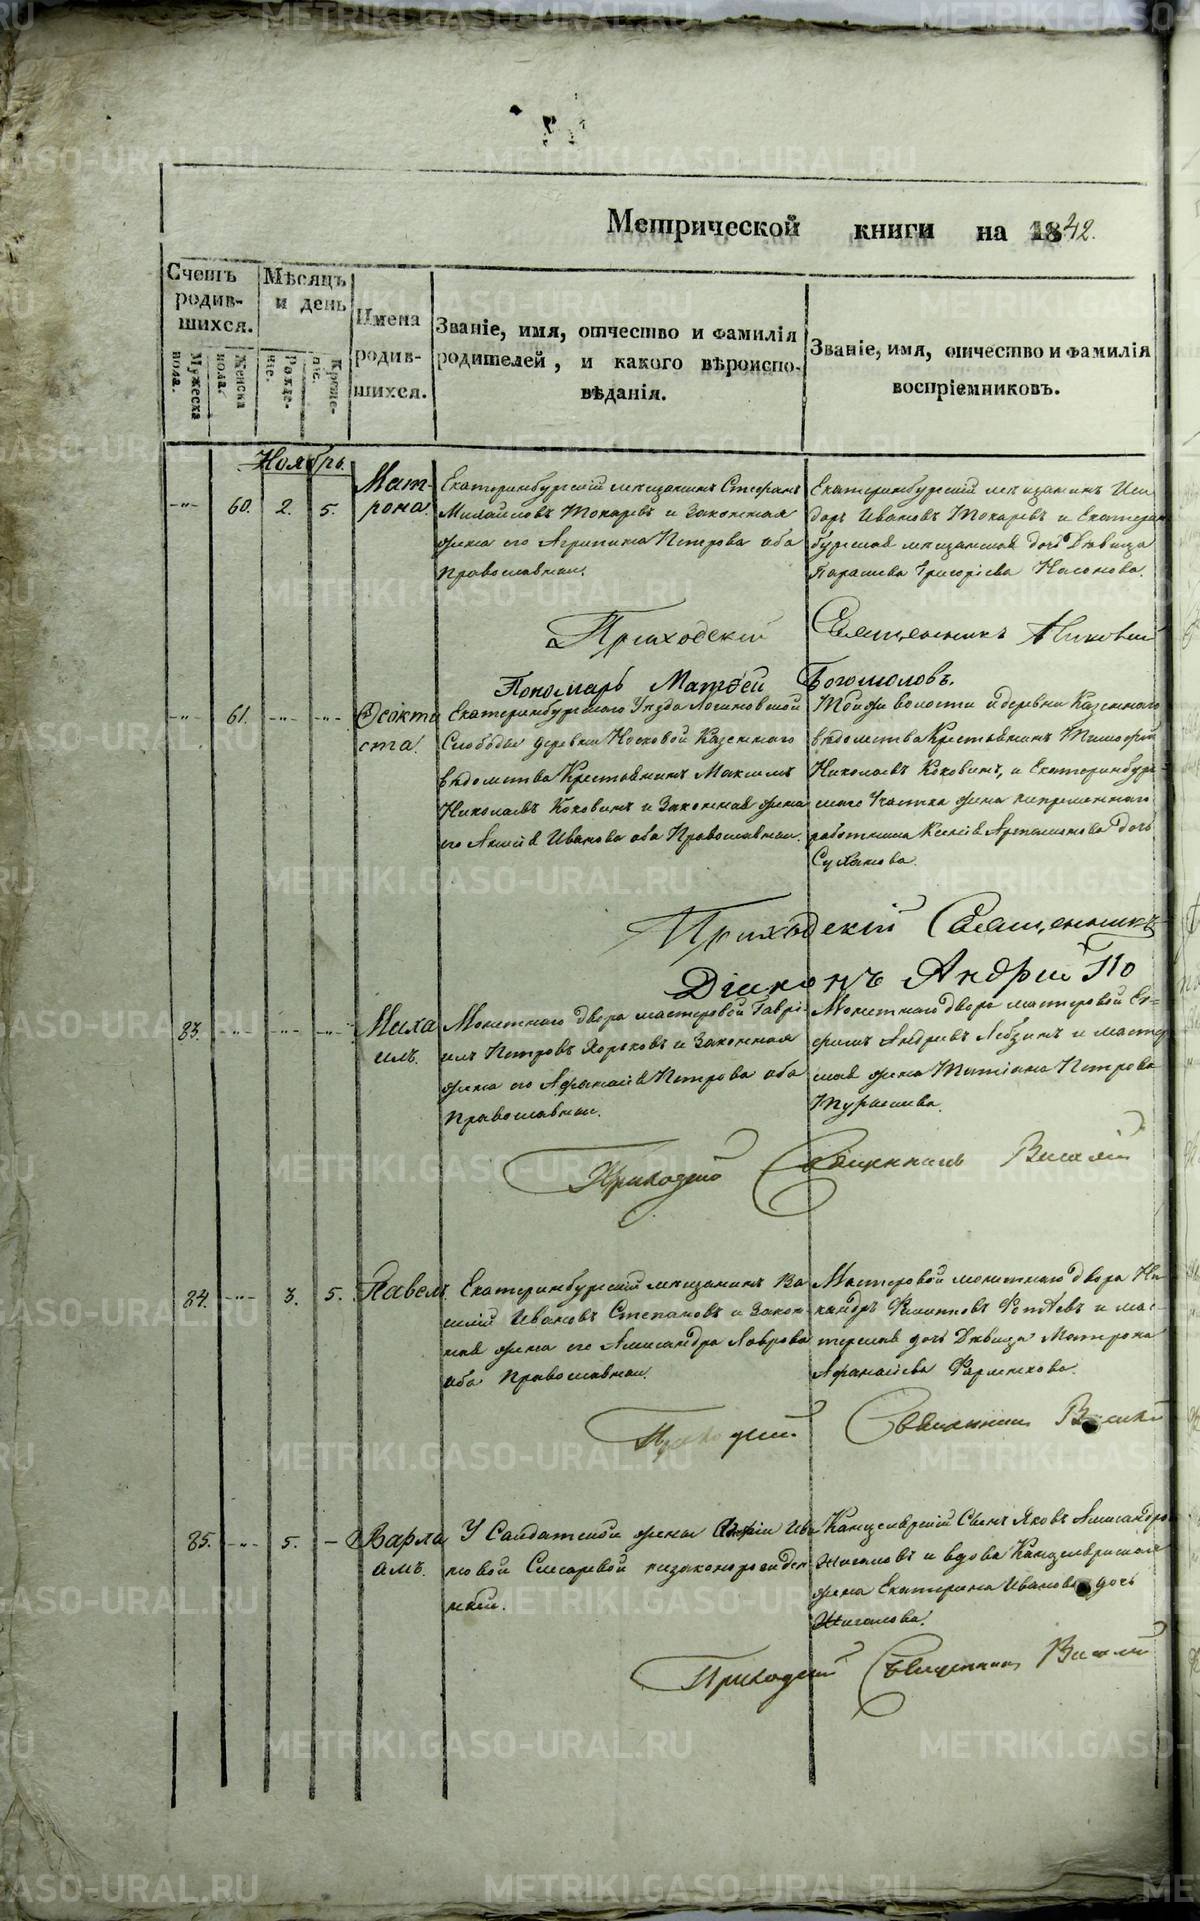 Метрической книги на 1842.
Счетъ родив-шихся.
Мужеска пола.
Женска пола.
Мѣсяцъ и день
Рожде-нiе.
Креще-нiе.
Имена родив-шихся.
Званіе, имя, отчество и фамилія
родителей, и какого вѣроиспо-
вѣданія.
Званіе, имя, отчество и фамилія
воспріемниковъ.
Ноябрь.
-"- 60. 2. 5.
Мат-
рона.
Екатеринбургскій мѣщанинъ Стефанъ
Михайловъ Токаревъ и законная
жена его Агрипина Петрова оба
православные.
Екатеринбургскій мѣщанинъ Иси-
доръ Ивановъ Токаревъ и Екатерин
бургская мѣщанская дочь дѣвица
Параскева Григорьева Насонова.
Приходскій Священникъ
Пономарь Матѳей Богомоловъ.
-"- 61. -"- -"-
Ѳеокти
ста.
Екатеринбургскаго Уѣзда Логиновской
Слободы деревни Носковой Казеннаго
вѣдомства Крестьянинъ Максимъ
Николаевъ Коковинъ и Законная жена
его Иванова оба Православные.
Той же волости и деревни Казеннаго
вѣдомства Крестьянинъ Тимофей
Николаевъ Коковинъ, и Екатеринбург-
жена непременнаго
работника Ксенія Артамонова дочь
Суханова.
Приходскій Священникъ
Діаконъ Андрей По
83. -"- -"- -"-
Миха
илъ.
Монетнаго двора мастеровой Гаврі-
илъ Петровъ Хорьковъ и Законная
жена его Петрова оба
Православные.
Монетнаго двора мастеровой Еѳ-
Андреевъ и мастер
жена Татіана Петрова
Приходскій Священникъ Василій
84. -"- 3. 5.
Павелъ.
Екатеринбургскій мѣщанинъ Ва
силій Ивановъ Степановъ и закон-
ная жена его Александра Лаврова
оба Православные.
Мастеровой монетнаго двора Ни-
кандръ Филиповъ и мас-
дочь дѣвица Матрона
Афанасьева
Приходскій Священникъ Василій
85. -"- 5. -
Варла
амъ.
У Солдатской жены Ива
новой Слесаревой незаконорожден
ный.
Канцелярскій Сынъ Яковъ Александро
Жигаловъ и вдова Канцелярская
жена Екатерина Иванова дочь
Жигалова.
Приходскій Священникъ Василій
METRIKI.GASO-URAL.RU